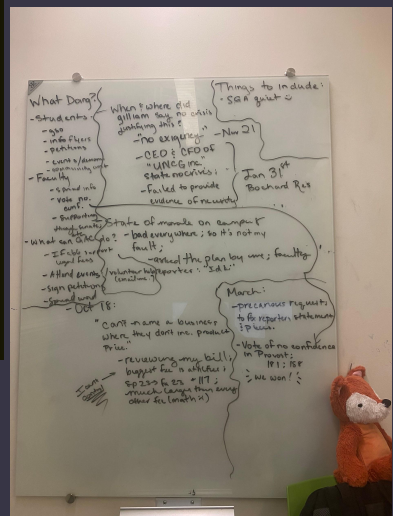 What Doing?
- Students:
- gso
- info flyers
- petitions
- Faculty
- spread info
- vote no.
conf.
- supporting
- What can do?
- Attend events
- sign petitions
- Spread word
When & where did
gilliam say no crisis
justifying this?
- "no exigency" - Nov 21
- CEO & CFO of
"UNCG inc"
state no crisis;
- Failed to provide
evidence of necessity
Things to include:
- SGA quiet
Jan 31st
Bochard Res
State of morale on campus
- bad everywhere; so it's not my
fault;
- asked the plan by one; faculty
reporter: "Idk"
Oct 18:
"can't name a business
where they don't inc. product
Price."
- reviewing my bill;
biggest fee is athletics;
- much larger than every
other fee (math x)
March:
- precarious request;
to for reporters statement
& places.
- Vote of no confidence
in Provost;
we won!